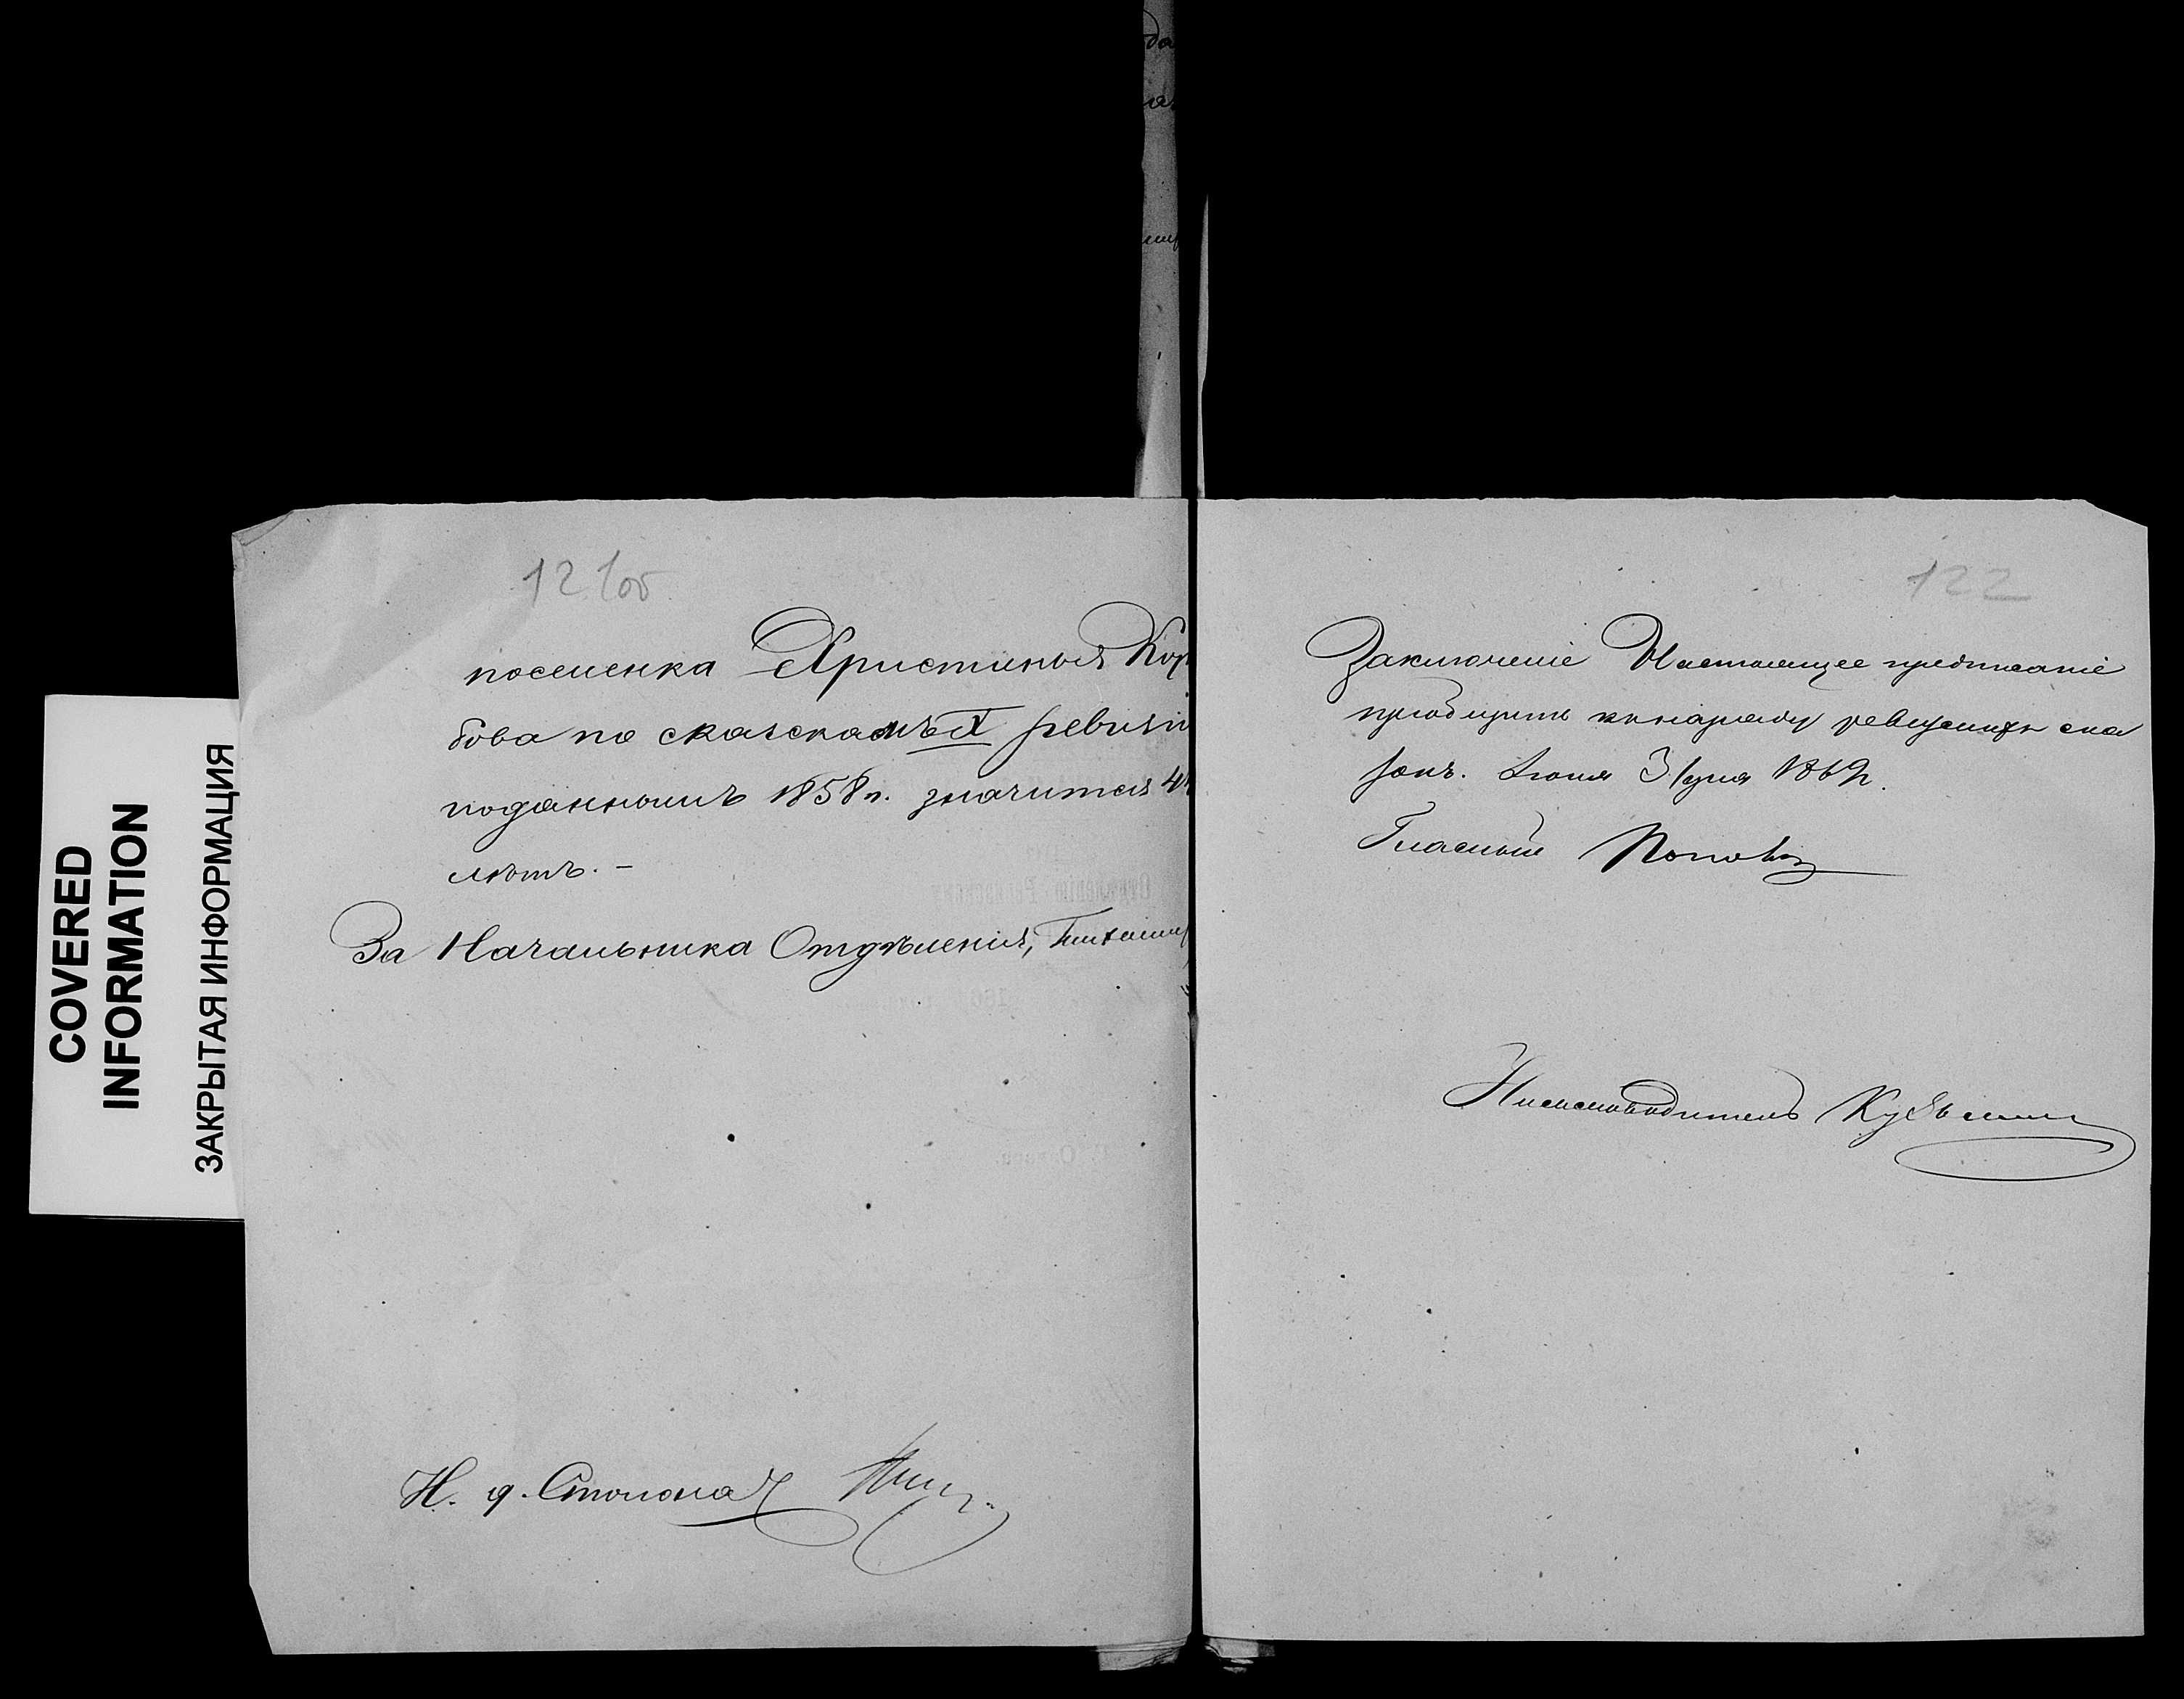 COVERED
INFORMATION
ЗАКРЫТАЯ ИНФОРМАЦИЯ
121об
поселенка Христинья Кор
бова по сказкамъ X ревизіи
поданнымъ 1858 г. значится 4
лѣтъ. –
За Начальника Отдѣленія,
И. д. Столонач
122
Заключеніе Настоящее предписаніе
пріобщить къ наряду ревизскихъ ска
зокъ. Іюня 3 дня 1869 г.
Гласный Поповъ
Письмоводитель